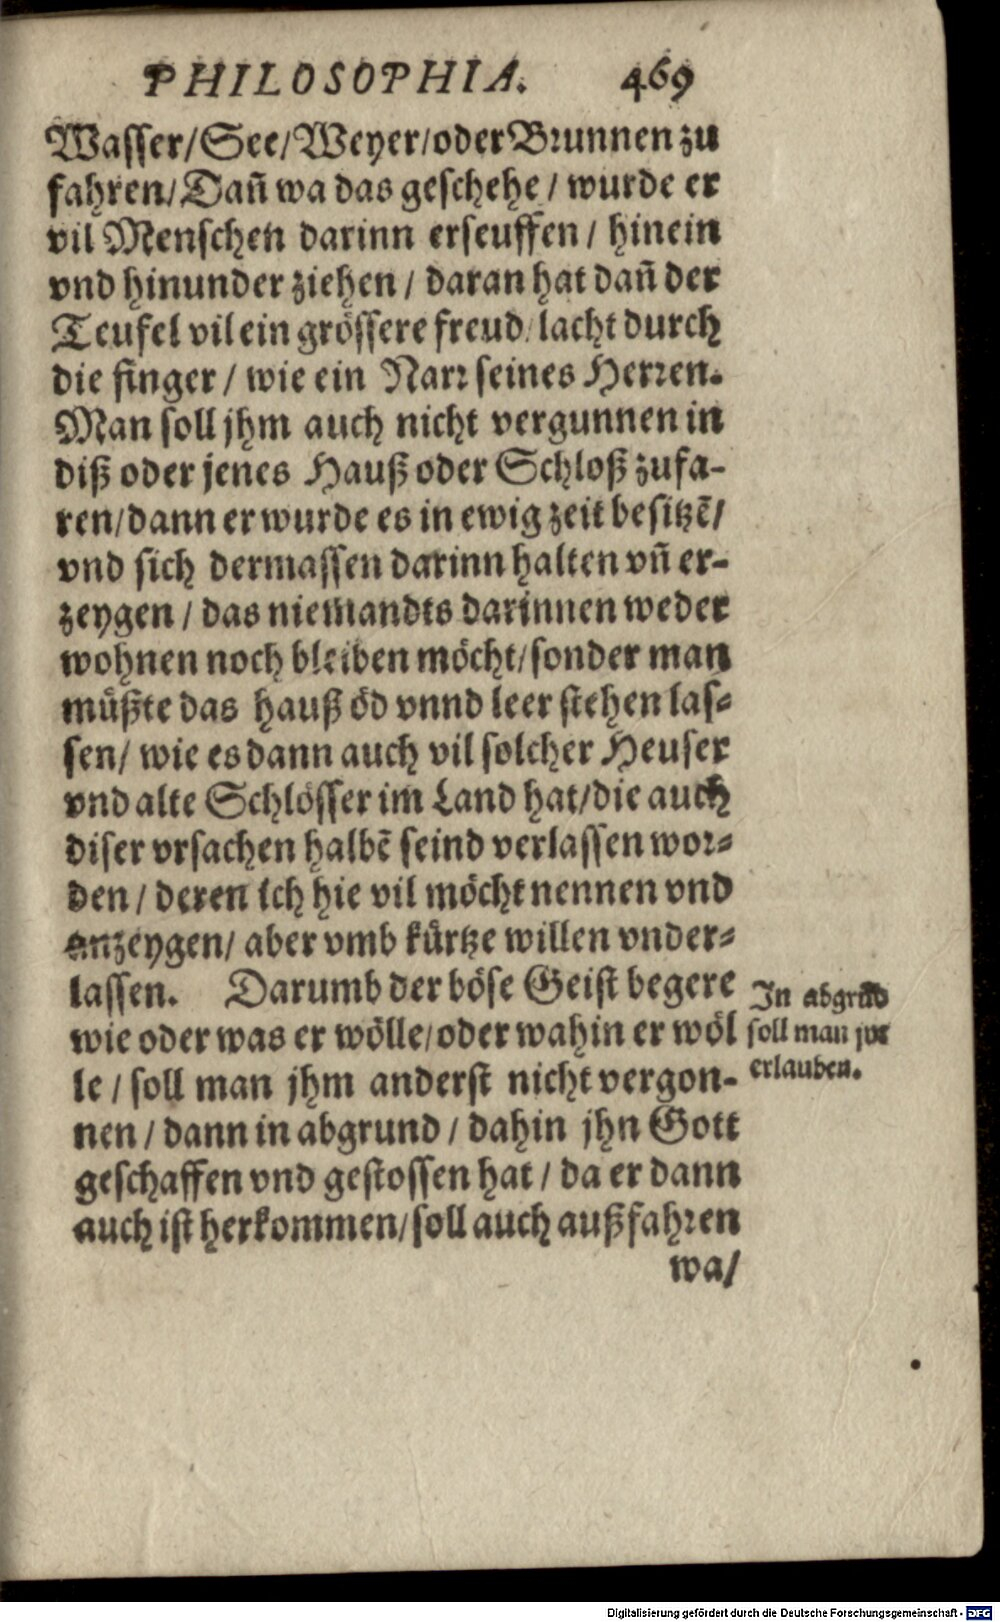 PHILOSOPHIA. 469
Wasser/See/Weyer/oder Brunnen zu
fahren/Dañ wa das geschehe/ wurde er
vil Menschen darinn erseuffen/ hinein
vnd hinunder ziehen/ daran hat dañ der
Teufel vil ein grössere freud/lacht durch
die finger/ wie ein Narr seines Herren.
Man soll jhm auch nicht vergunnen in
diß oder jenes Hauß oder Schloß zufa-
ren/dann er wurde es in ewig zeit besitzẽ/
vnd sich dermassen darinn halten vñ er-
zeygen/ das niemandts darinnen weder
wohnen noch bleiben möcht/sonder man
müßte das hauß öd vnnd leer stehen las-
sen/ wie es dann auch vil solcher Heuser
vnd alte Schlösser im Land hat/die auch
diser vrsachen halbẽ seind verlassen wor-
den/ deren ich hie vil möcht nennen vnd
anzeygen/ aber vmb kürtze willen vnder-
lassen. Darumb der böse Geist begere
wie oder was er wölle/oder wahin er wöl
le/ soll man jhm anderst nicht vergon-
nen/ dann in abgrund/ dahin jhn Gott
geschaffen vnd gestossen hat/ da er dann
auch ist herkommen/soll auch außfahren
wa/
In abgrũd
soll man jm
erlauben.
Digitalisierung gefördert durch die Deutsche Forschungsgemeinschaft - DFG